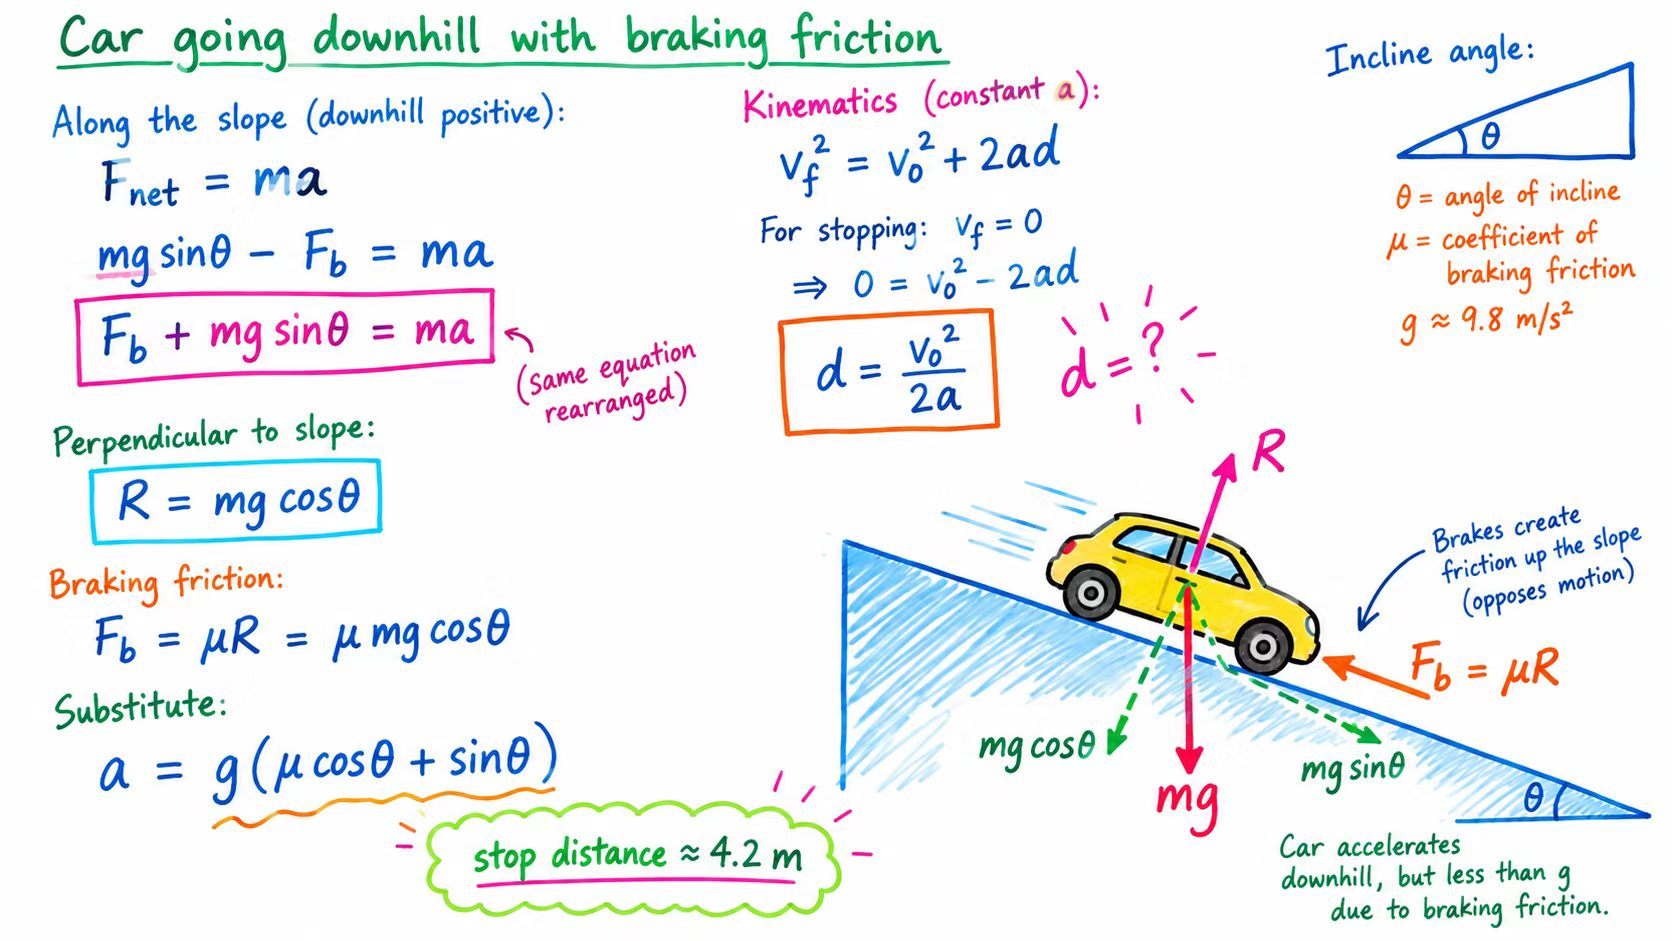 Car going downhill with braking friction
Along the slope (downhill positive):
F_net = ma
mg sinθ − F_b = ma
F_b + mg sinθ = ma
(same equation
rearranged)
Perpendicular to slope:
R = mg cosθ
Braking friction:
F_b = μR = μ mg cosθ
Substitute:
a = g(μ cosθ + sinθ)
stop distance ≈ 4.2 m
Kinematics (constant a):
v_f² = v_0² + 2ad
For stopping: v_f = 0
⇒ 0 = v_0² − 2ad
d = v_0² / 2a
d = ?
Incline angle:
θ
θ = angle of incline
μ = coefficient of
braking friction
g ≈ 9.8 m/s²
R
Brakes create
friction up the slope
(opposes motion)
F_b = μR
mg cosθ
mg
mg sinθ
θ
Car accelerates
downhill, but less than g
due to braking friction.